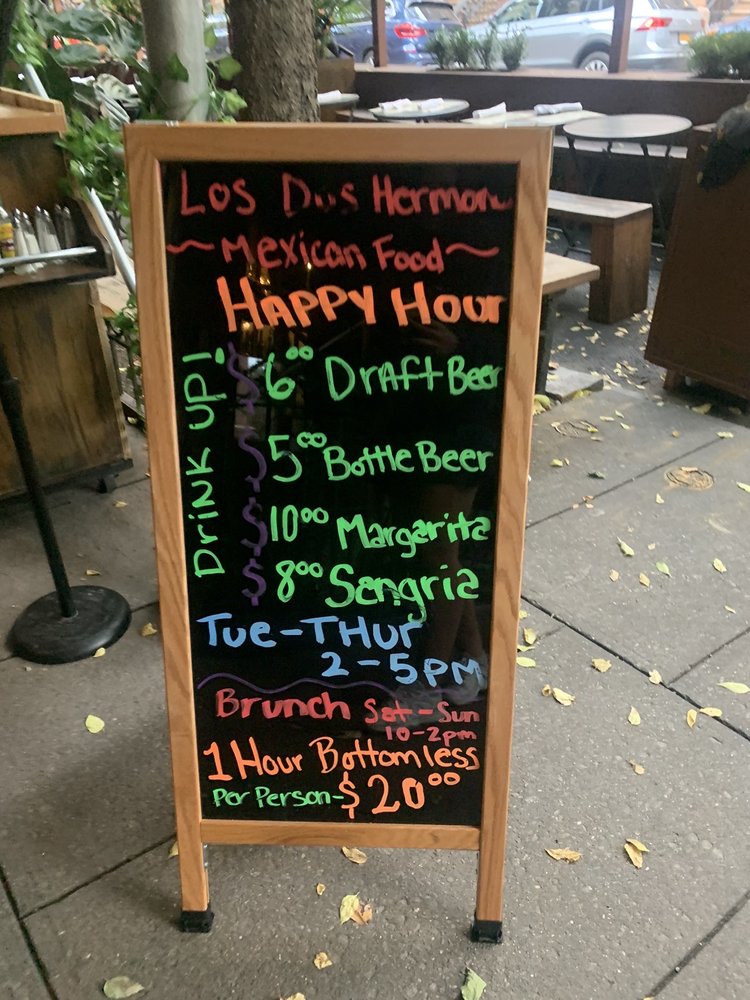 Los Dos Hermano
~ Mexican Food ~
Happy Hour
Drink up!
$6.00 Draft Beer
$5.00 Bottle Beer
$10.00 Margarita
$8.00 Sangria
Tue-Thur
2-5pm
Brunch Sat-Sun
10-2pm
1 Hour Bottomless
Per Person-$20.00